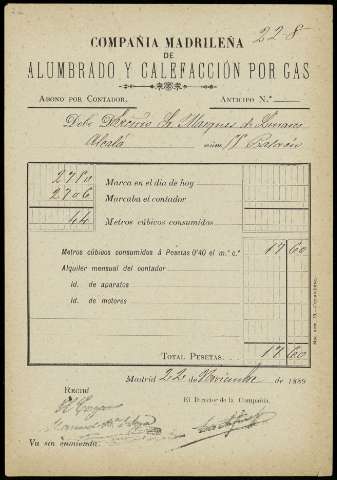 228
COMPAÑIA MADRILEÑA
DE
ALUMBRADO Y CALEFACCIÓN POR GAS
ABONO POR CONTADOR.
ANTICIPO N.º
Debe el Excmo Sr. Marques de Linares
Alcalá núm. 17
Marca en el día de hoy
Marcaba el contador 2706
Metros cúbicos consumidos 44
Metros cúbicos consumidos á Pesetas 0'40 el m.s c.s 17 60
Alquiler mensual del contador
id. de aparatos
id. de motores
TOTAL PESETAS. 17 60
Madrid 22 de Noviembre de 1889
RECIBÍ
El Director de la Compañía,
Va sin enmienda: